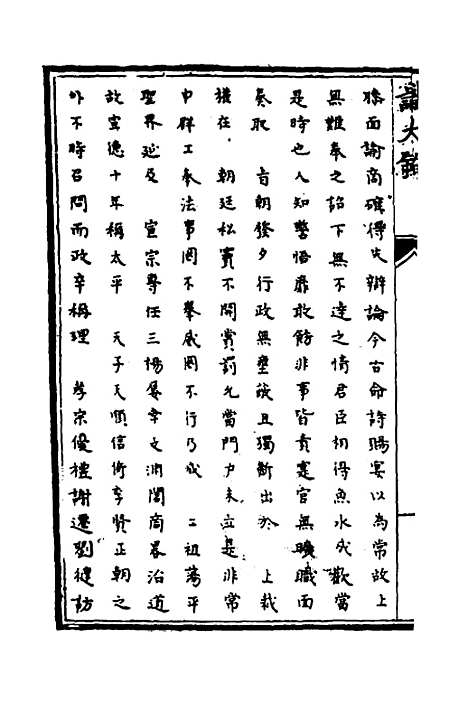 膝面論商確得失辯論今古命詩賜宴以為常故上
無難奉之詔下無不達之情君臣相得魚水成歡當
是時也人知警悟靡敢飾非事皆責寔官無曠職面
奏取　旨朝發夕行政無壅蔽且獨斷出於　上裁
權在　朝廷私竇不開賞罰允當門户未立是非常
中群工奉法事罔不舉威罔不行乃我　二祖蕩平
聖界延及　宣宗專任三楊屡幸文淵閣商畧治道
故宣德十年稱太平　天子天順信衛李賢正朝之
外不時召問而政辛稱理　孝宗優禮謝遷劉健訪